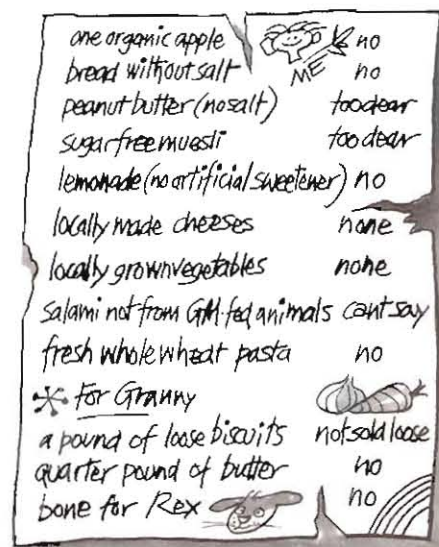 one organic apple no
ME
bread without salt no
peanut butter (no salt) too dear
sugar free muesli too dear
lemonade (no artificial sweetener) no
locally made cheeses none
locally grown vegetables none
salami not from GM-fed animals cant say
fresh whole wheat pasta no
For Granny
a pound of loose biscuits not sold loose
quarter pound of butter no
bone for Rex no